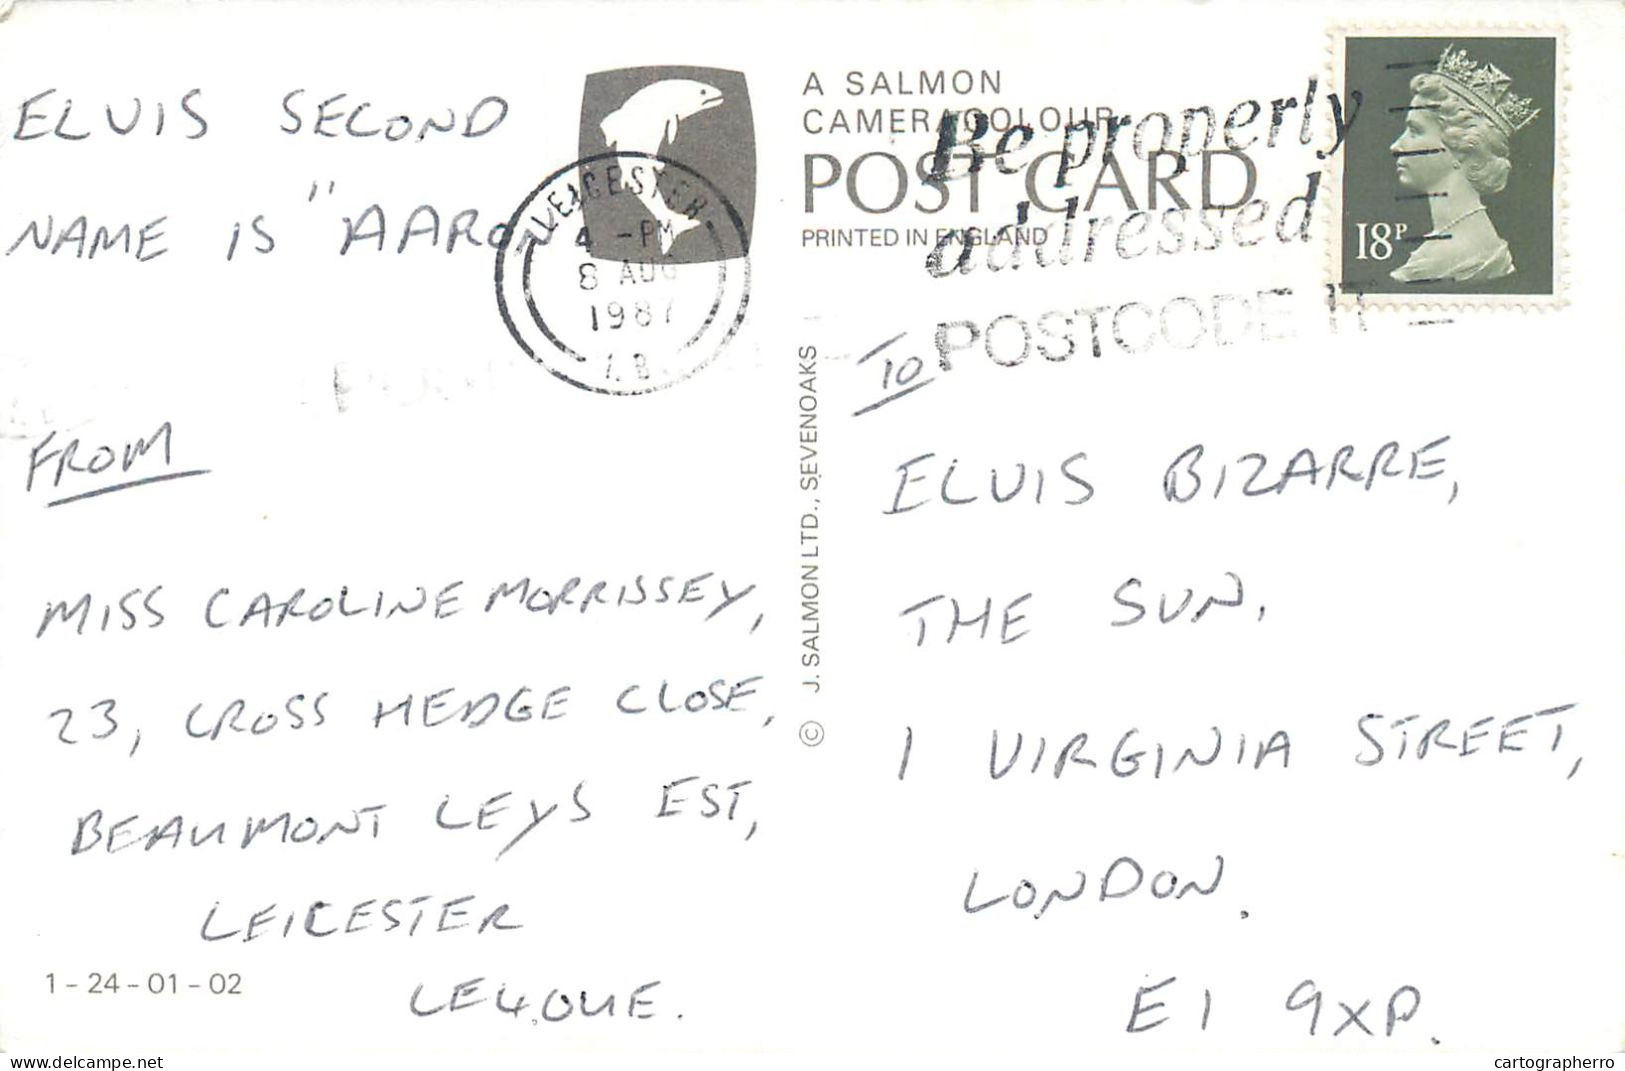 ELVIS SECOND
NAME IS "AARON
LEICESTER
4 -PM
8 AUG
1987
FROM
MISS CAROLINE MORRISSEY,
23, CROSS HEDGE CLOSE,
BEAUMONT LEYS EST,
LEICESTER
LE4.OUE.
1-24-01-02
© J. SALMON LTD., SEVENOAKS
A SALMON
CAMERACOLOUR
POST CARD
PRINTED IN ENGLAND
Be properly
addressed
POSTCODE IT
18P
TO
ELVIS BIZARRE,
THE SUN,
1 VIRGINIA STREET,
LONDON.
E1 9XP.
cartographerro